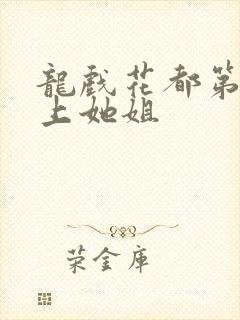 龍戲花都第
上她姐
荣金库